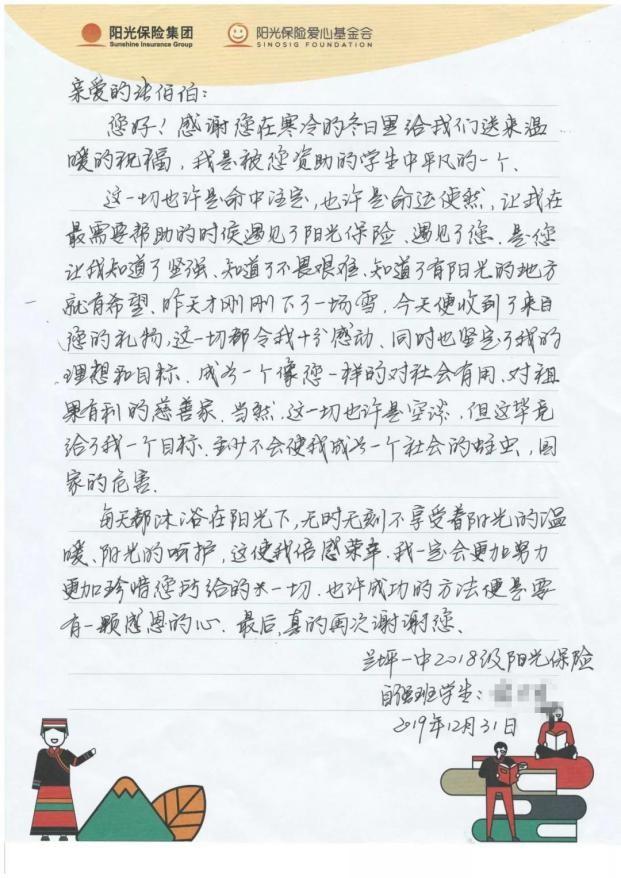 阳光保险集团
Sunshine Insurance Group
阳光保险爱心基金会
SINOSIG FOUNDATION
亲爱的张伯伯：
您好！感谢您在寒冷的冬日里给我们送来温
暖的祝福，我是被您资助的学生中平凡的一个、
这一切也许是命中注定，也许是命运使然，让我在
最需要帮助的时侯遇见了阳光保险、遇见了您、是您
让我知道了坚强、知道了不畏艰难、知道了有阳光的地方
就有希望、昨天才刚刚下了一场雪，今天便收到了来自
您的礼物，这一切都令我十分感动、同时也坚定了我的
理想和目标、成为一个像您一样的对社会有用、对祖
果有利的慈善家、当然、这一切也许是空谈、但这毕竟
给了我一个目标、至少不会使我成为一个社会的蛀虫，国
家的危害、
每天都沐浴在阳光下，无时无刻不享受着阳光的温
暖、阳光的呵护，这使我倍感荣幸、我一定会更加努力
更加珍惜您所给的一切、也许成功的方法便是要
有一颗感恩的心、最后，真的再次谢谢您、
兰坪一中2018级阳光保险
自强班学生：
2019年12月31日